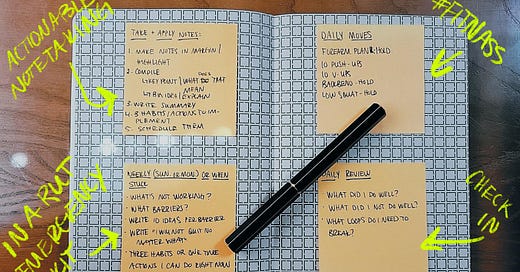 ACTIONABLE
NOTETAKING
TAKE + APPLY NOTES:
1. MAKE NOTES IN MARGIN/
HIGHLIGHT
2. COMPILE
↳KEY POINT / WHAT DOES THAT
MEAN
EXPLAIN
3. WRITE SUMMARY
4. 3 HABITS/ACTIONS TO IM-
PLEMENT
5. SCHEDULE THEM
#FITNASS
DAILY MOVES
FOREARM PLANK HOLD
10 PUSH-UPS
10 V-UPS
BACKBEND HOLD
LOW SQUAT HOLD
IN A RUT
EMERGENCY
WEEKLY (SUN. OR MON.) OR WHEN
STUCK
· WHAT'S NOT WORKING?
· WHAT BARRIERS?
WRITE 10 IDEAS PER BARRIER
· WRITE "I WILL NOT QUIT NO
MATTER WHAT"
· THREE HABITS OR ONE TIME
ACTIONS I CAN DO RIGHT NOW
CHECK
IN
DAILY REVIEW
· WHAT DID I DO WELL?
· WHAT DID I NOT DO WELL?
· WHAT LOOPS DO I NEED TO
BREAK?